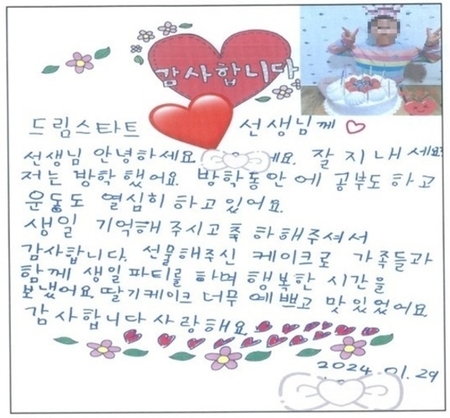 감사합니다
드림스타트 선생님께
선생님 안녕하세요. 예요. 잘 지내세요
저는 방학 했어요. 방학동안에 공부도 하고
운동도 열심히 하고 있어요.
생일 기억해 주시고 축하해주셔서
감사합니다. 선물해주신 케이크로 가족들과
함께 생일 파티를 하며 행복한 시간을
보냈어요 딸기케이크 너무 예쁘고 맛있었어요
감사합니다 사랑해요
2024.01.29